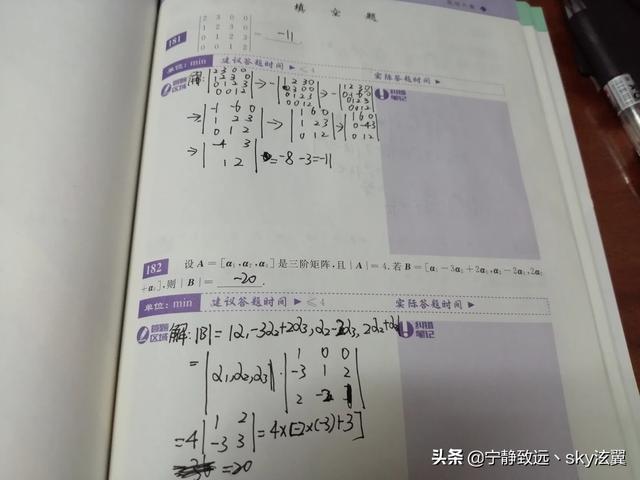 填 空 题
181
2 3 0 0
1 2 3 0
0 1 2 3
0 0 1 2
= -11
单位: min 建议答题时间 ▶ ≤4 实际答题时间 ▶
答题区域
纠错笔记
解:
2 3 0 0
1 2 3 0
0 1 2 3
0 0 1 2
→ -
1 2 3 0
2 3 0 0
0 1 2 3
0 0 1 2
→ -
1 2 3 0
0 -1 -6 0
0 1 2 3
0 0 1 2
→
-1 -6 0
1 2 3
0 1 2
→
1 6 0
1 2 3
0 1 2
→
1 6 0
0 -4 3
0 1 2
→
-4 3
1 2
= -8 -3 = -11
182 设 A = [α₁, α₂, α₃] 是三阶矩阵, 且 | A | = 4. 若 B = [α₁ - 3α₂ + 2α₃, α₂ - 2α₃, 2α₂
+ α₃], 则 | B | = -20 .
单位: min 建议答题时间 ▶ ≤4 实际答题时间 ▶
答题区域
纠错笔记
解: |B| = |α₁-3α₂+2α₃, α₂-2α₃, 2α₂+α₃|
= |α₁,α₂,α₃| ·
1 0 0
-3 1 2
2 -2 1
= 4
1 2
-3 3
= 4×[-2×(-3)+3]
=20
头条 @宁静致远、sky泫翼